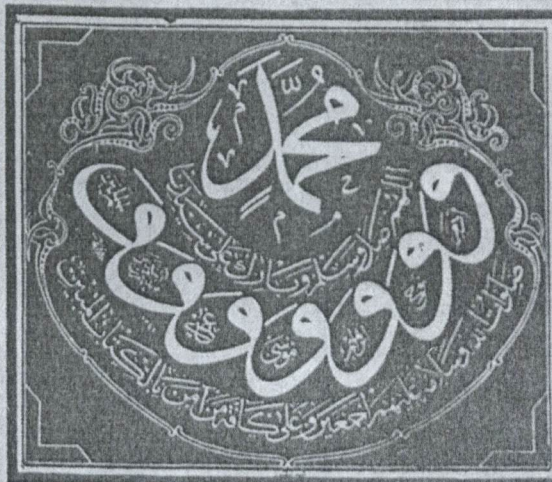 محمد
اللهم صل وسلم وبارك على سيدنا
و و و و و و
آدم
نوح
إبراهيم
موسى
عيسى
صلوات الله وسلامه عليهم أجمعين وعلى كافة من آمن بالكتاب المبين